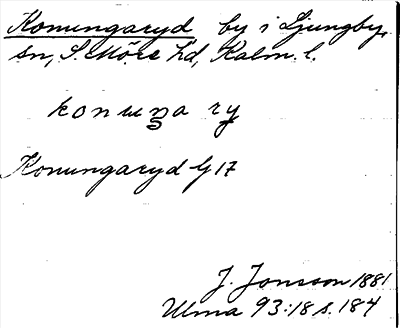 Konungaryd by i Ljungby
sn, S. Möre hd, Kalm. l.
konuŋa ry
Konungaryd G 17
J. Jonsson 1881
Ulma 93:18 s. 184